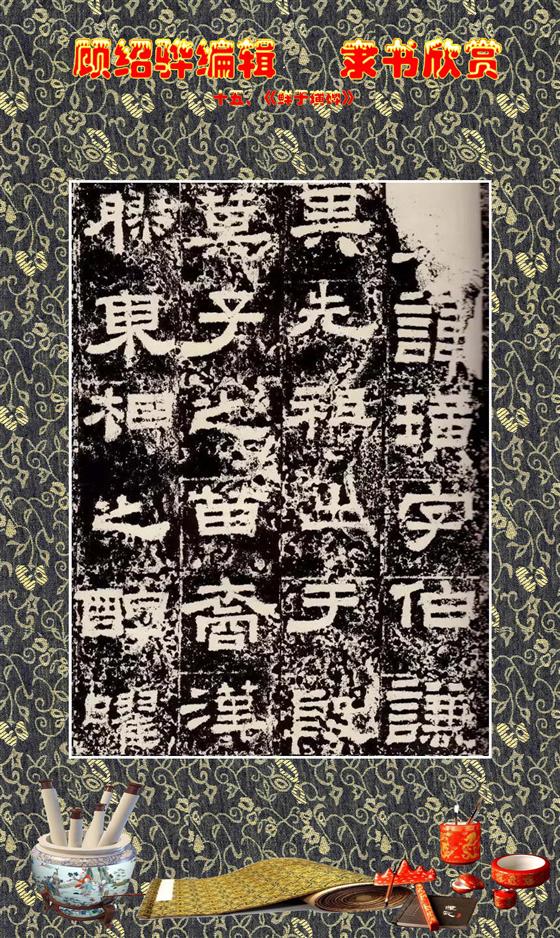 顾绍骅编辑 隶书欣赏
十五、《鲜于璜碑》
諱璜字伯謙
其先祖出于殷
箕子之苗裔漢
膠東相之醇曜